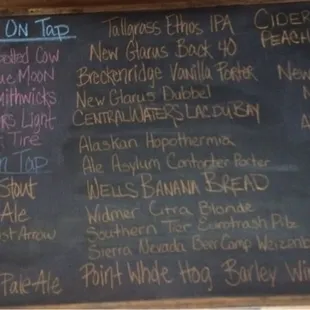 ON TAP
otted Cow
ue Moon
mithwicks
rs Light
Tire
n TAP
Stout
Ale
st Arrow
Pale Ale
Tallgrass Ethos IPA
New Glarus Back 40
Breckenridge Vanilla Porter
New Glarus Dubbel
CENTRAL WATERS LAC DU BAY
Alaskan Hopothermia
Ale Asylum Contorter Porter
WELLS BANANA BREAD
Widmer Citra Blonde
Southern Tier Eurotrash Pilz
Sierra Nevada Beer Camp Weizenb
Point Whole Hog Barley Win
CIDER
PEACH
New